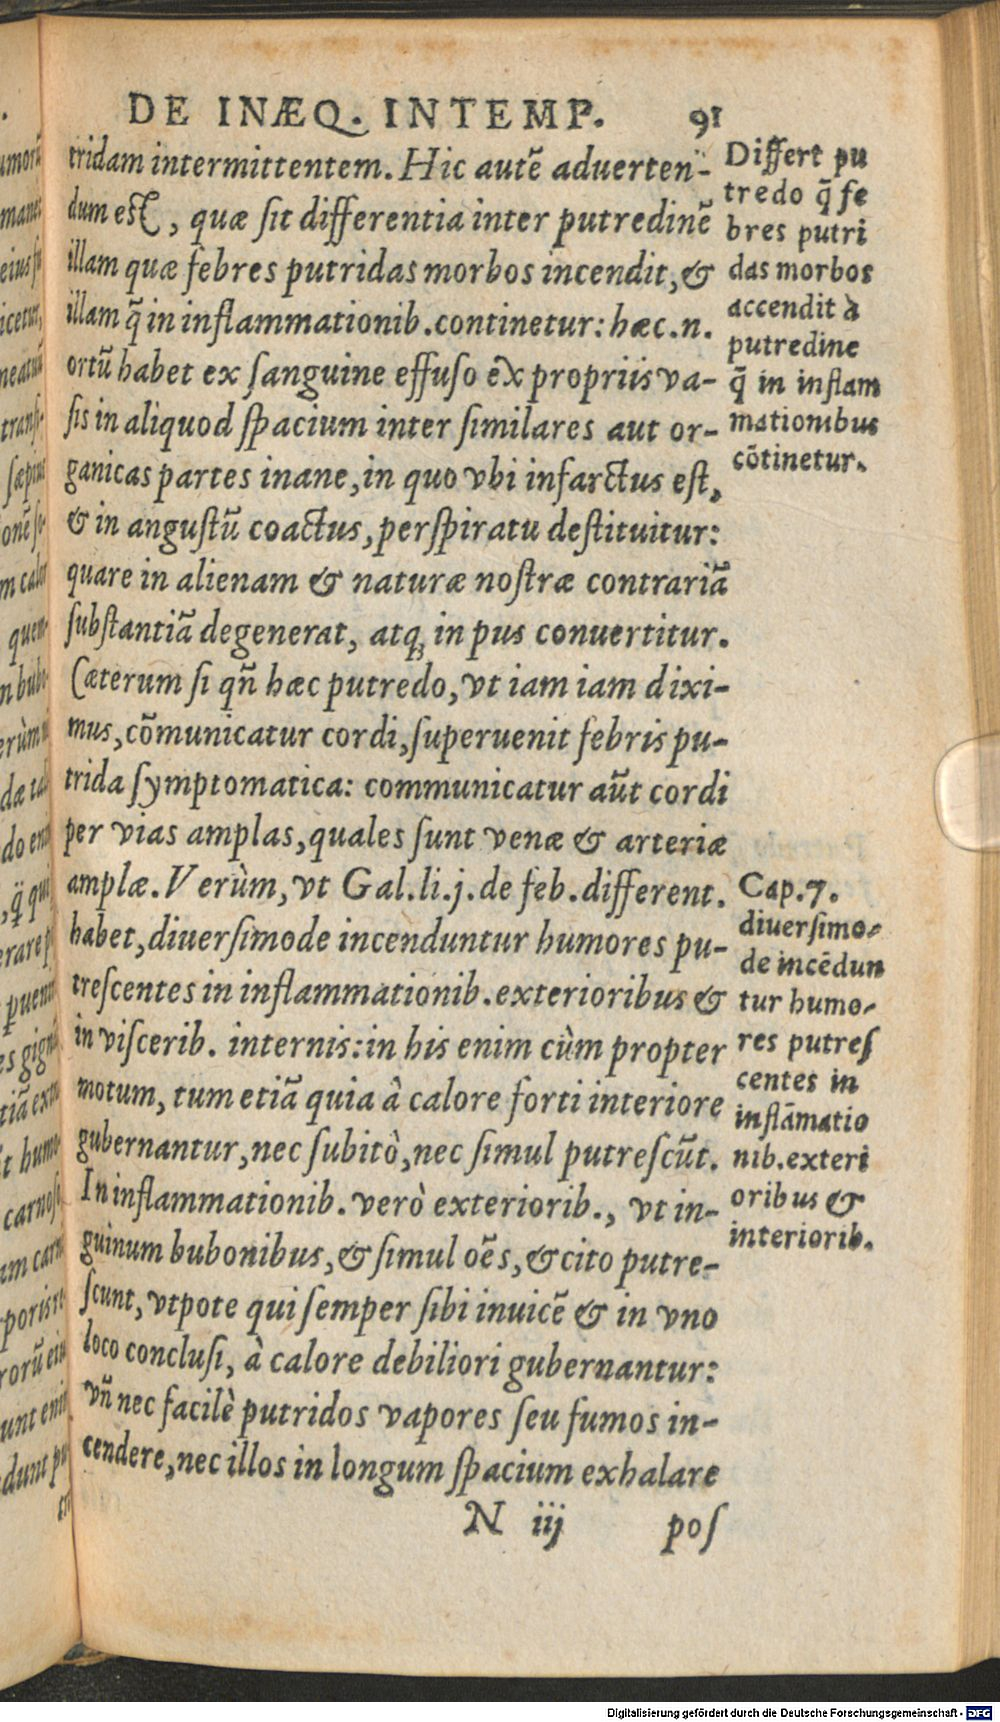 DE INÆQ. INTEMP. 91
tridam intermittentem. Hic autē aduerten-
dum est, quæ ſit differentia inter putredinē
illam quæ febres putridas morbos incendit, &
illam q̄ in inflammationib. continetur: hæc .n.
ortū habet ex ſanguine effuſo ex propriis va-
ſis in aliquod ſpacium inter ſimilares aut or-
ganicas partes inane, in quo vbi infarctus eſt,
& in anguſtū coactus, perſpiratu deſtituitur:
quare in alienam & naturæ noſtræ contrariā
ſubſtantiā degenerat, atq; in pus conuertitur.
Cæterum ſi qñ hæc putredo, vt iam iam dixi-
mus, cōmunicatur cordi, ſuperuenit febris pu-
trida ſymptomatica: communicatur aūt cordi
per vias amplas, quales ſunt venæ & arteriæ
amplæ. Verùm, vt Gal. li. j. de feb. different.
habet, diuerſimode incenduntur humores pu-
treſcentes in inflammationib. exterioribus &
in viſcerib. internis: in his enim cùm propter
motum, tum etiā quia à calore forti interiore
gubernantur, nec ſubitò, nec ſimul putreſcūt.
In inflammationib. verò exteriorib., vt in-
guinum bubonibus, & ſimul oēs, & cito putre-
ſcunt, vtpote qui ſemper ſibi inuicē & in vno
loco concluſi, à calore debiliori gubernantur:
vñ nec facilè putridos vapores ſeu fumos in-
cendere, nec illos in longum ſpacium exhalare
N iij poſ
Differt pu
tredo q̄ fe
bres putri
das morbos
accendit à
putredine
q̄ in inflam
mationibus
cōtinetur.
Cap. 7.
diuerſimo-
de incēdun
tur humo-
res putreſ
centes in
inflāmatio
nib. exteri
oribus &
interiorib.
Digitalisierung gefördert durch die Deutsche Forschungsgemeinschaft - DFG